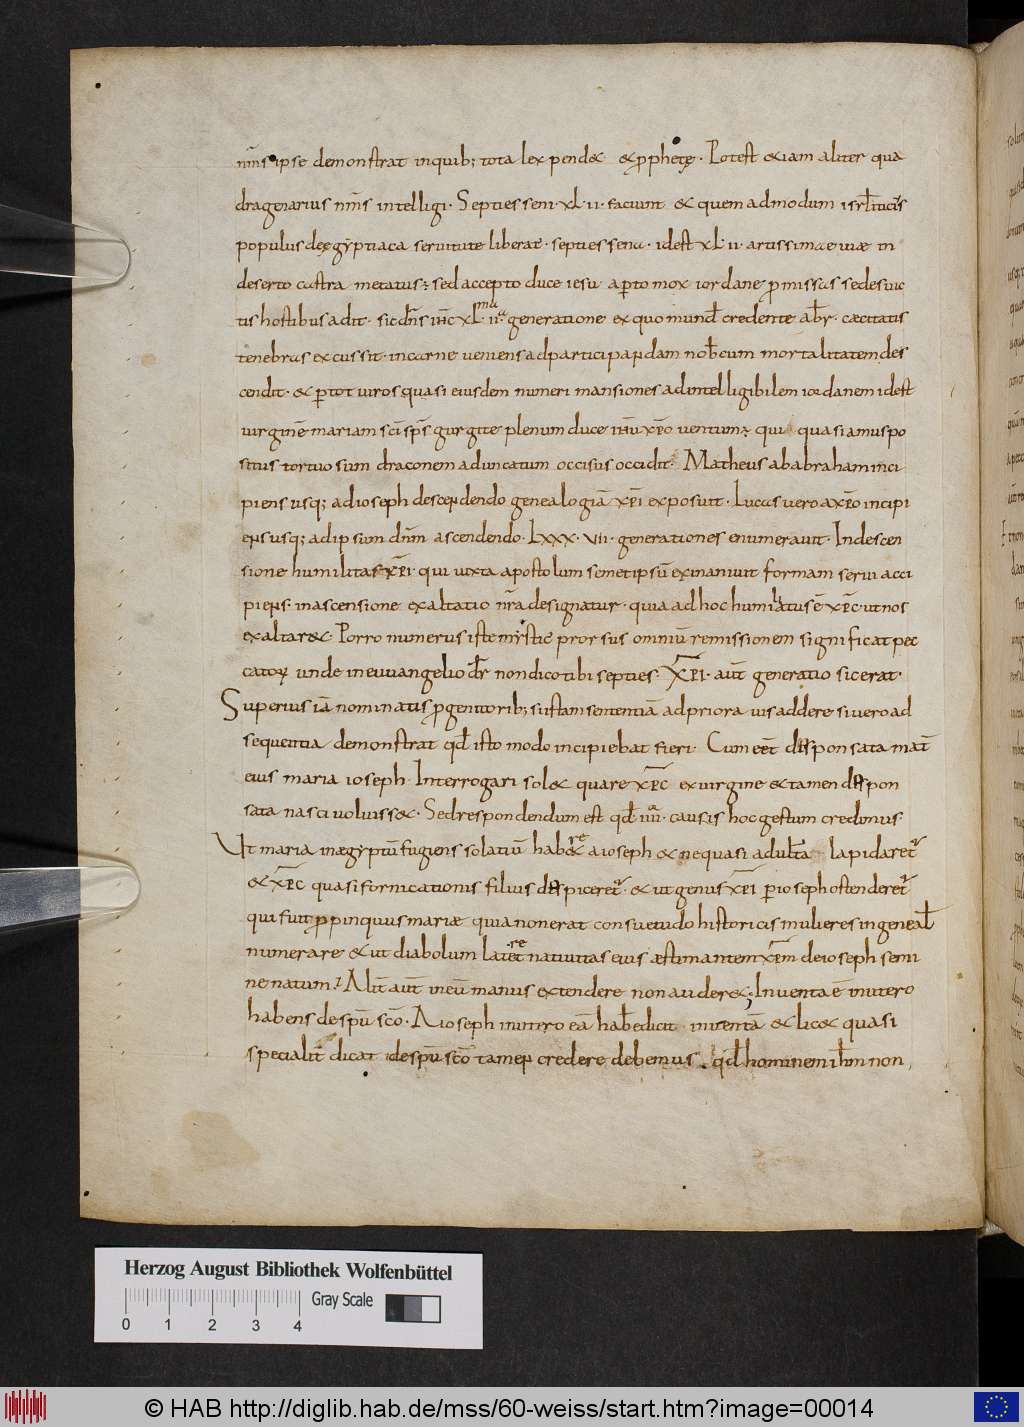 nūs ipse demonstrat in quib; tota lex pendet et ꝓphetę. Potest etiam aliter qua
dragenarius nūs intelligi. Septies seni. XL II. faciunt et quemadmodum isrłiticus
populus de ęgyptiaca servitute liberat. septies sena. id est XL II. artissimae viae in
deserto castra metatus; sed accepto duce iesu aperto mox iordane ꝓmissas sedes vic
tis hostibus adit. sic dn̄s ih̄c XL II generatione ex quo mund credente abr. caecitatis
tenebras excussit. in carne veniens ad participandam nobcum mortalitatem des
cendit. et per tot viros quasi eiusdem numeri mansiones ad intelligibilem iordanem id est
virginē mariam sc̄i sp̄s gurgite plenum duce ih̄u xp̄o ventum; qui quasi amus po
situs tortuosum draconem aduncatum occisus occidit. Matheus ab abraham inci
piens usq; ad ioseph descendendo genealogiā xp̄i exposuit. Lucas vero a xp̄o incipi
ens usq; ad ipsum dn̄m ascendendo. LXXX. VII. generationes enumeravit. In descen
sione humilitas xp̄i. qui iuxta apostolum semetipsū exinanivit formam servi acci
piens. in ascensione exaltatio nr̄a designatur. quia ad hoc humiliatus ē xp̄c ut nos
exaltaret. Porro numerus iste mystic prorsus omniū remissionem significat pec
catorum unde in euuangelio dr̄ non dico tibi septies. XP̄I. aut̄ generatio sic erat.
Superius iā nominatis ꝓgenitorib; si istam sententiā ad priora vis addere si vero ad
sequentia demonstrat qd̄ isto modo incipiebat fieri. Cum eēt disponsata mat̄
eius maria ioseph. Interrogari solet quare xp̄c ex virgine et tamen dispon
sata nasci voluisset. Sed respondendum est qd̄ IIII. causis hoc gestum credimus.
Ut maria in aegyptū fugiens solatiū haberet a ioseph et ne quasi adultā lapidaret̄
et xp̄c quasi fornicationis filius despiceret̄. et ut genus xp̄i per ioseph ostenderet̄
qui fuit ꝓpinquus mariae quia non erat consuetudo historicis mulieres in geneał
numerare et ut diabolum lateret nativitas eius aestimantem xp̄m de ioseph semi
ne natum. Alit̄ aut̄ in eū manus extendere non auderet; Inventa ē in utero
habens de sp̄u sc̄o. A ioseph in utero eā haberē dicit inventā et licet quasi
specialit̄ dicat de sp̄u sc̄o tamen credere debemus. qd̄ hominem ih̄m non
Herzog August Bibliothek Wolfenbüttel
Gray Scale
0 1 2 3 4
© HAB http://diglib.hab.de/mss/60-weiss/start.htm?image=00014